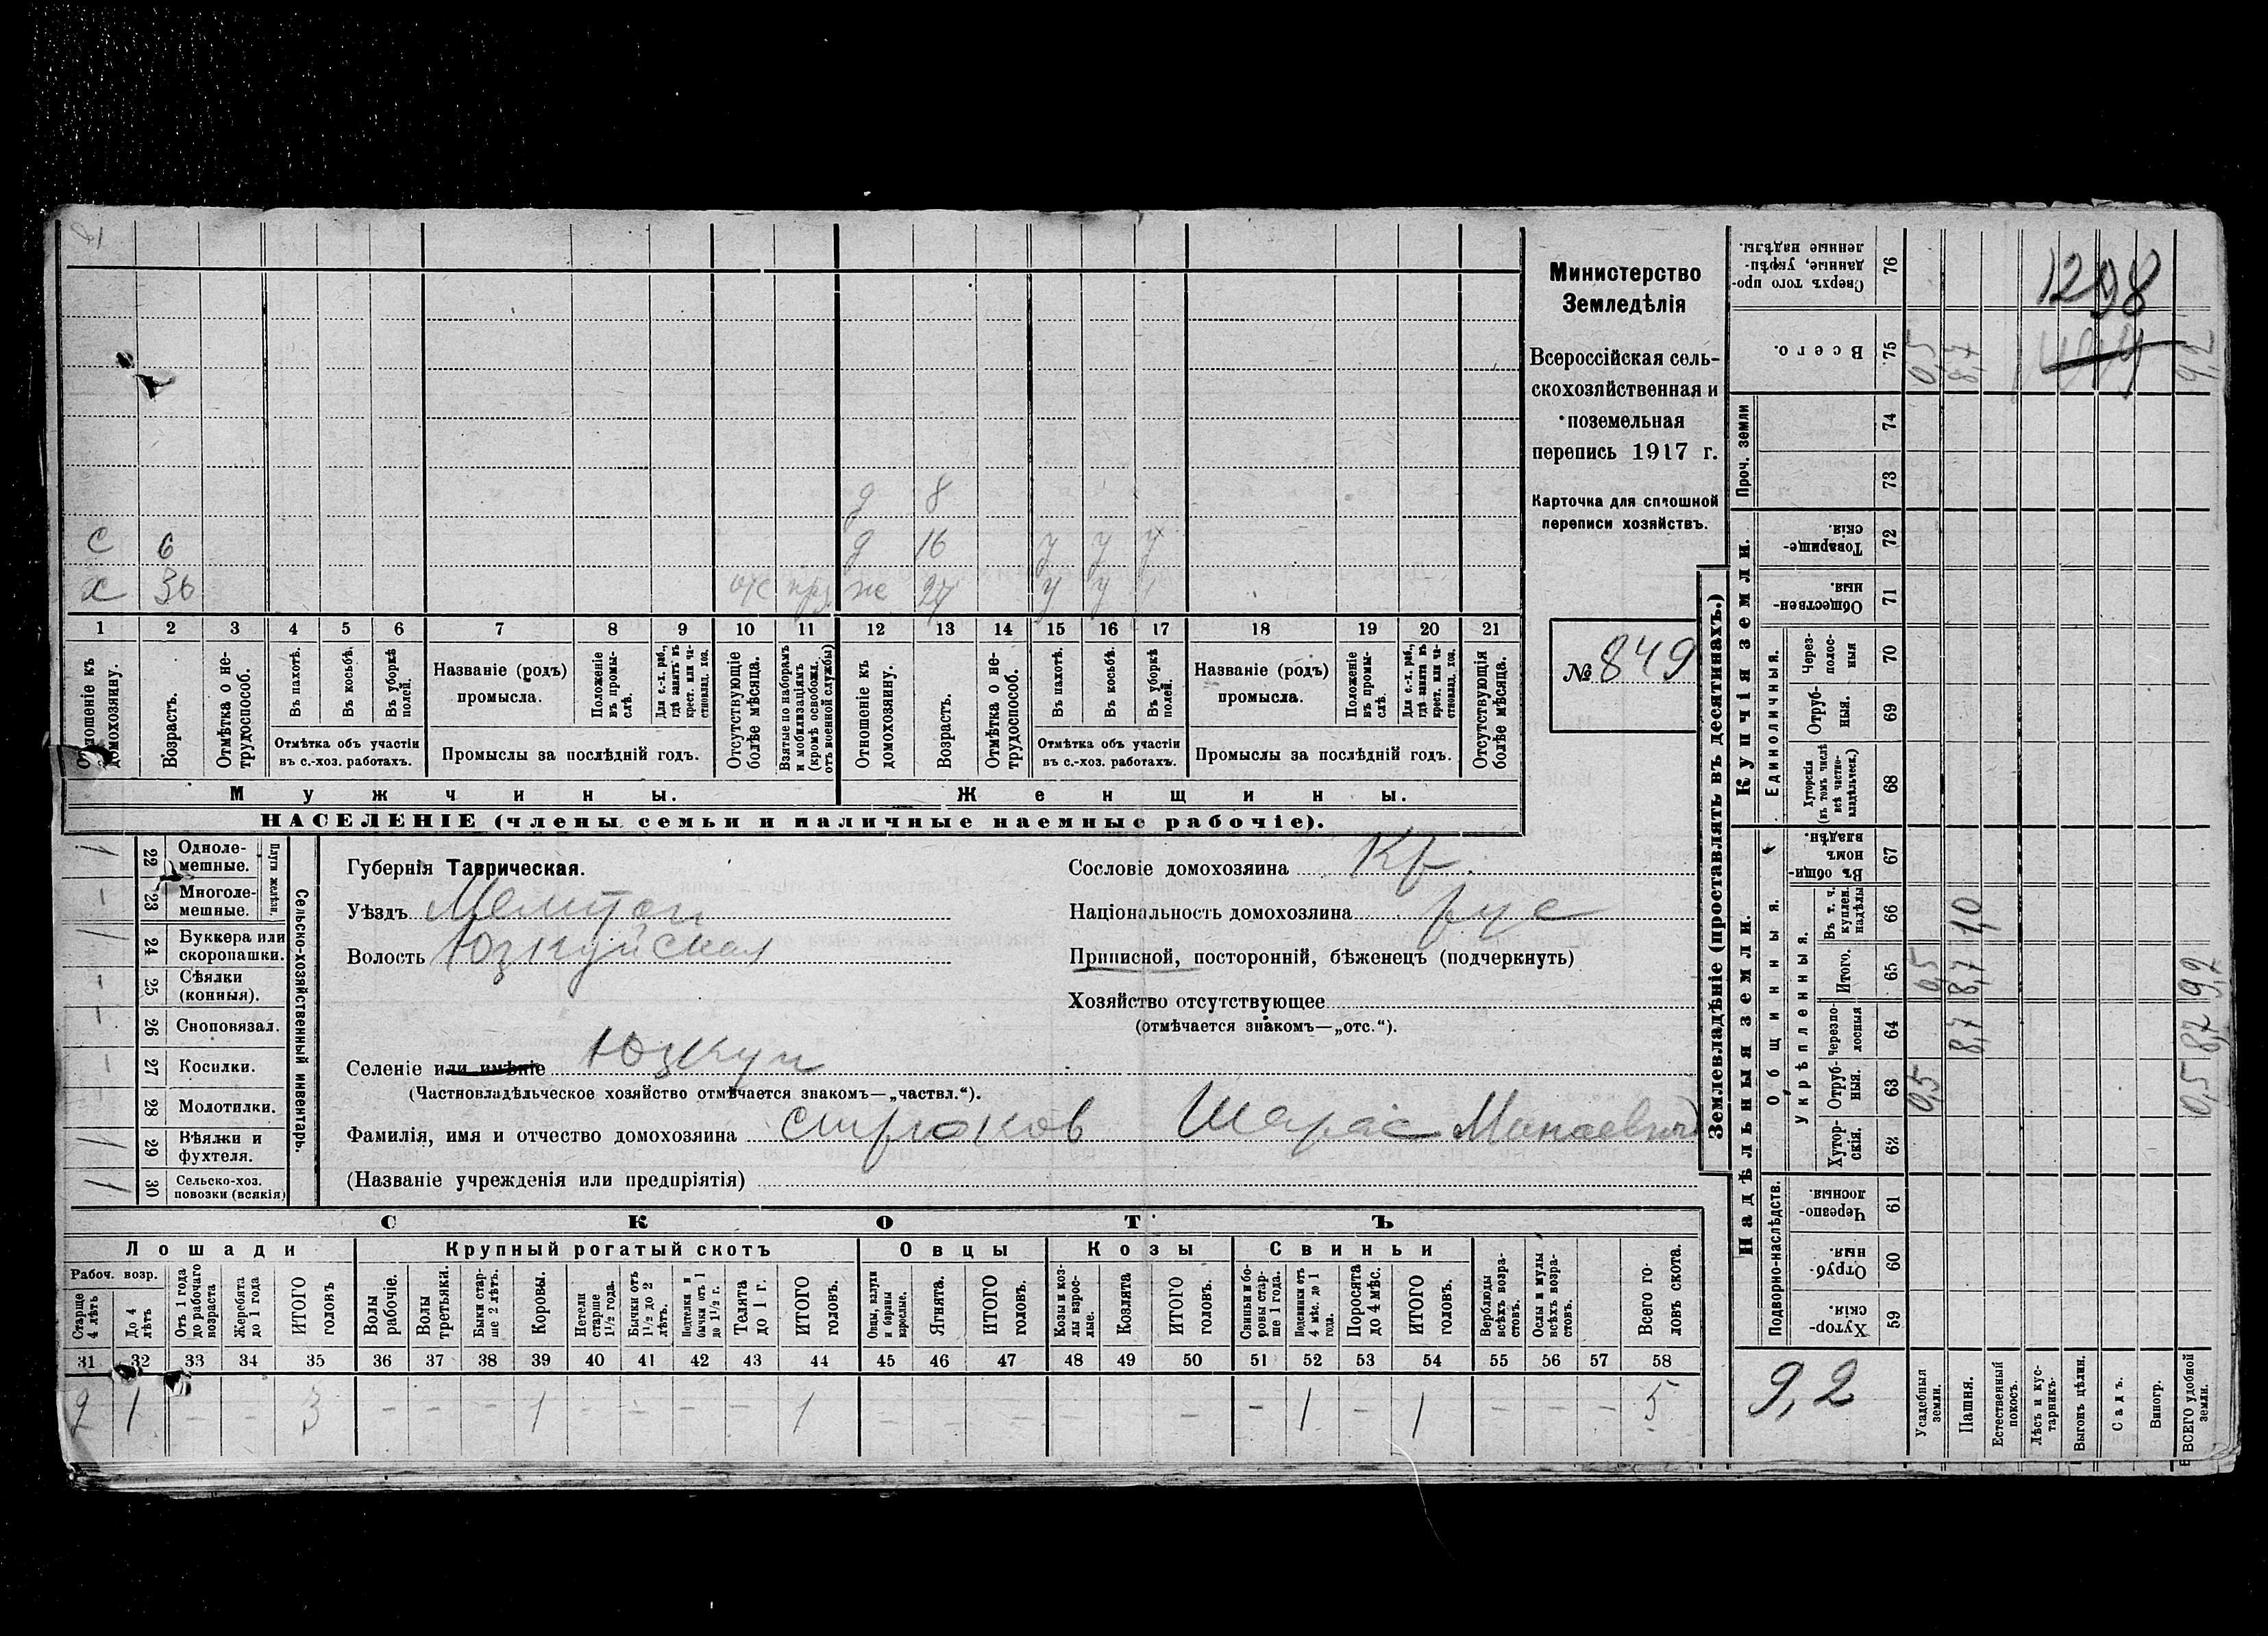 д 8
с 6 д 16 у у у
х 36 отс ж 27 у у
1 2 3 4 5 6 7 8 9 10 11 12 13 14 15 16 17 18 19 20 21
Отношеніе къ домохозяину.
Возрастъ.
Отмѣтка о нетрудоспособ.
Въ пахотѣ.
Въ косьбѣ.
Въ уборкѣ полей.
Отмѣтка объ участіи
въ с.-хоз. работахъ.
Названіе (родъ)
промысла.
Положеніе въ промыслѣ.
Для с.-х. раб., гдѣ занятъ въ крест. или частновлад. хоз.
Промыслы за послѣдній годъ.
Отсутствующіе болѣе мѣсяца.
Взятые по наборамъ и мобилизаціямъ (кромѣ освобожд. отъ военной службы)
Отношеніе къ домохозяину.
Возрастъ.
Отмѣтка о нетрудоспособ.
Въ пахотѣ.
Въ косьбѣ.
Въ уборкѣ полей.
Отмѣтка объ участіи
въ с.-хоз. работахъ.
Названіе (родъ)
промысла.
Положеніе въ промыслѣ.
Для с.-х. раб., гдѣ занята въ крест. или частновлад. хоз.
Промыслы за послѣдній годъ.
Отсутствующія болѣе мѣсяца.
Мужчины. Женщины.
НАСЕЛЕНІЕ (члены семьи и наличные наемные рабочіе).
Министерство
Земледѣлія
Всероссійская сель-
скохозяйственная и
поземельная
перепись 1917 г.
Карточка для сплошной
переписи хозяйствъ.
№ 849
Сельско-хозяйственный инвентарь.
Плуги желѣзн.
1 22 Однолемешные.
- 23 Многолемешные.
1 24 Буккера или скоропашки.
- 25 Сѣялки (конныя).
- 26 Сноповязал.
- 27 Косилки.
- 28 Молотилки.
1 29 Вѣялки и фухтеля.
1 30 Сельско-хоз. повозки (всякія)
Губернія Таврическая.
Уѣздъ Мелитоп
Волость Юзкуйская
Селеніе или имѣніе Юзкуи
(Частновладѣльческое хозяйство отмѣчается знакомъ—„частвл.“).
Фамилія, имя и отчество домохозяина Стрюков Манаевич
(Названіе учрежденія или предпріятія)
Сословіе домохозяина Кр
Національность домохозяина рус
Приписной, посторонній, бѣженецъ (подчеркнуть)
Хозяйство отсутствующее
(отмѣчается знакомъ—„отс.“).
СКОТЪ
Лошади Крупный рогатый скотъ Овцы Козы Свиньи
Рабоч. возр.
Старше 4 лѣтъ
До 4 лѣтъ
Отъ 1 года до рабочаго возраста
Жеребята до 1 года
ИТОГО головъ
Волы рабочіе.
Волы третьяки.
Быки старше 2 лѣтъ.
Коровы.
Нетели старше 1 1/2 года.
Бычки отъ 1 1/2 до 2 лѣтъ.
Подтелки и бычки отъ 1 до 1 1/2 г.
Телята до 1 г.
ИТОГО головъ.
Овцы, валухи и бараны взрослые.
Ягнята.
ИТОГО головъ.
Козы и козлы взрослые.
Козлята
ИТОГО головъ.
Свиньи и боровы старше 1 года.
Подсвинки отъ 4 мѣс. до 1 года.
Поросята до 4 мѣс.
ИТОГО головъ.
Верблюды всѣхъ возрастовъ.
Ослы и мулы всѣхъ возрастовъ.
Всего головъ скота.
31 32 33 34 35 36 37 38 39 40 41 42 43 44 45 46 47 48 49 50 51 52 53 54 55 56 57 58
2 1 - - 3 - - - 1 - - - - 1 - - - - 1 - 1 - - - 5
Землевладѣніе (проставлять въ десятинахъ.)
Надѣльныя земли. Купчія земли.
Подворно-наслѣдств.
Общинныя.
Укрѣпленныя.
Единоличныя.
Проч. земли
Сверхъ того проданные, укрѣпленные надѣлы. 76
1298
Всего. 75 0,5 8,7 9,2
74
73
Товарищескія. 72
Общественныя 71
Черезполосныя 70
Отрубныя. 69
Хуторскія (въ томъ числѣ всѣ частновладѣльческ.) 68
Въ общинномъ владѣн. 67
Въ т. ч. куплен. надѣлы 66
Итого. 65 0,5 8,7 9,2
Черезполосныя 64 8,7 8,7
Отрубныя. 63 0,5 0,5
Хуторскія. 62
Черезполосныя 61
Отрубныя. 60
Хуторскія. 59
9,2
Усадебныя земли.
Пашня.
Естественный покосъ.
Лѣсъ и кустарникъ.
Выгонъ цѣлин.
Садъ.
Виногр.
ВСЕГО удобной земли.